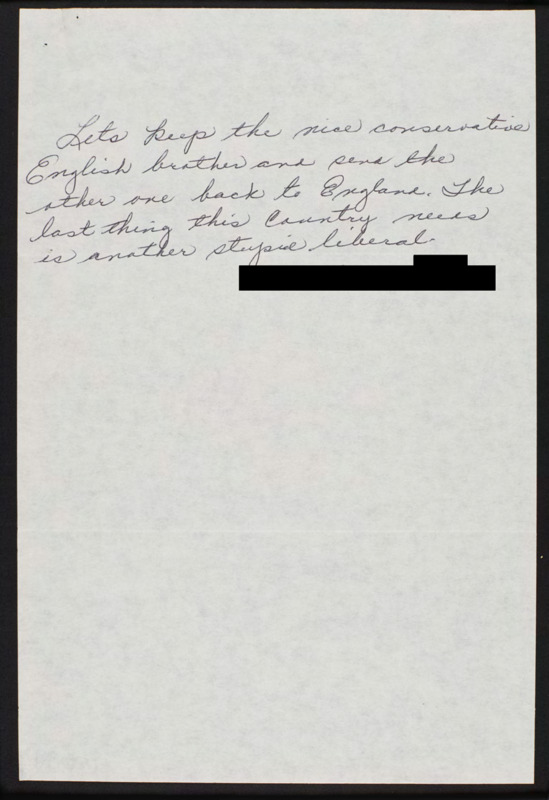 Lets keep the nice conservative
English brother and send the
other one back to England. The
last thing this Country needs
is another stupid liberal.